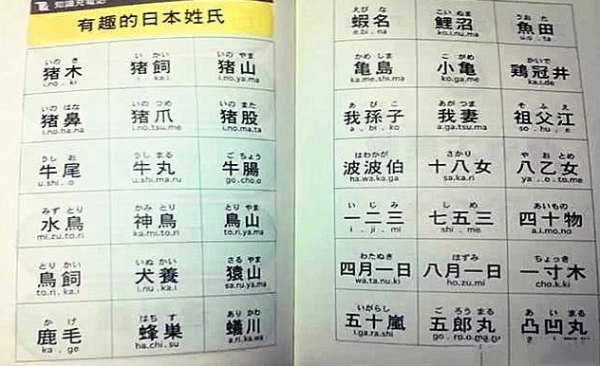 知識充電站
有趣的日本姓氏
いの き　い かい　いの やま
猪木　猪飼　猪山
i.no . ki　i . ka.i　i.no.ya.ma
いの はな　いの つめ　いの また
猪鼻　猪爪　猪股
i.no.ha.na　i.no.tsu.me　i.no.ma.ta
うし お　うし まる　ご ちょう
牛尾　牛丸　牛腸
u.shi . o　u.shi.ma.ru　go.cho.o
みず とり　かみ とり　とり やま
水鳥　神鳥　鳥山
mi.zu.to.ri　ka.mi.to.ri　to.ri.ya.ma
とり かい　いぬ かい　さる やま
鳥飼　犬養　猿山
to.ri.ka.i　i.nu.ka.i　sa.ru.ya.ma
か げ　はち す　あり かわ
鹿毛　蜂巣　蟻川
ka . ge　ha.chi.su　a.ri.ka.wa
え び な　こい ぬま　うお た
蝦名　鯉沼　魚田
e.bi . na　ko.i.nu.ma　u.o . ta
かめ しま　こ がめ　かいで
亀島　小亀　鶏冠井
ka.me.shi.ma　ko.ga.me　ka.i.de
あ び こ　あが つま　そ ふ え
我孫子　我妻　祖父江
a . bi . ko　a.ga.tsu.ma　so . hu . e
はわかが　さかり　や お とめ
波波伯　十八女　八乙女
ha.wa.ka.ga　sa.ka.ri　ya . o.to.me
い じ み　し め　あいもの
一二三　七五三　四十物
i . ji . mi　shi . me　a.i.mo.no
わたぬき　はずみ　ちょっき
四月一日　八月一日　一寸木
wa.ta.nu.ki　ho.zu.mi　cho.k.ki
いがらし　ご ろう まる　あ い まる
五十嵐　五郎丸　凸凹丸
i.ga.ra.shi